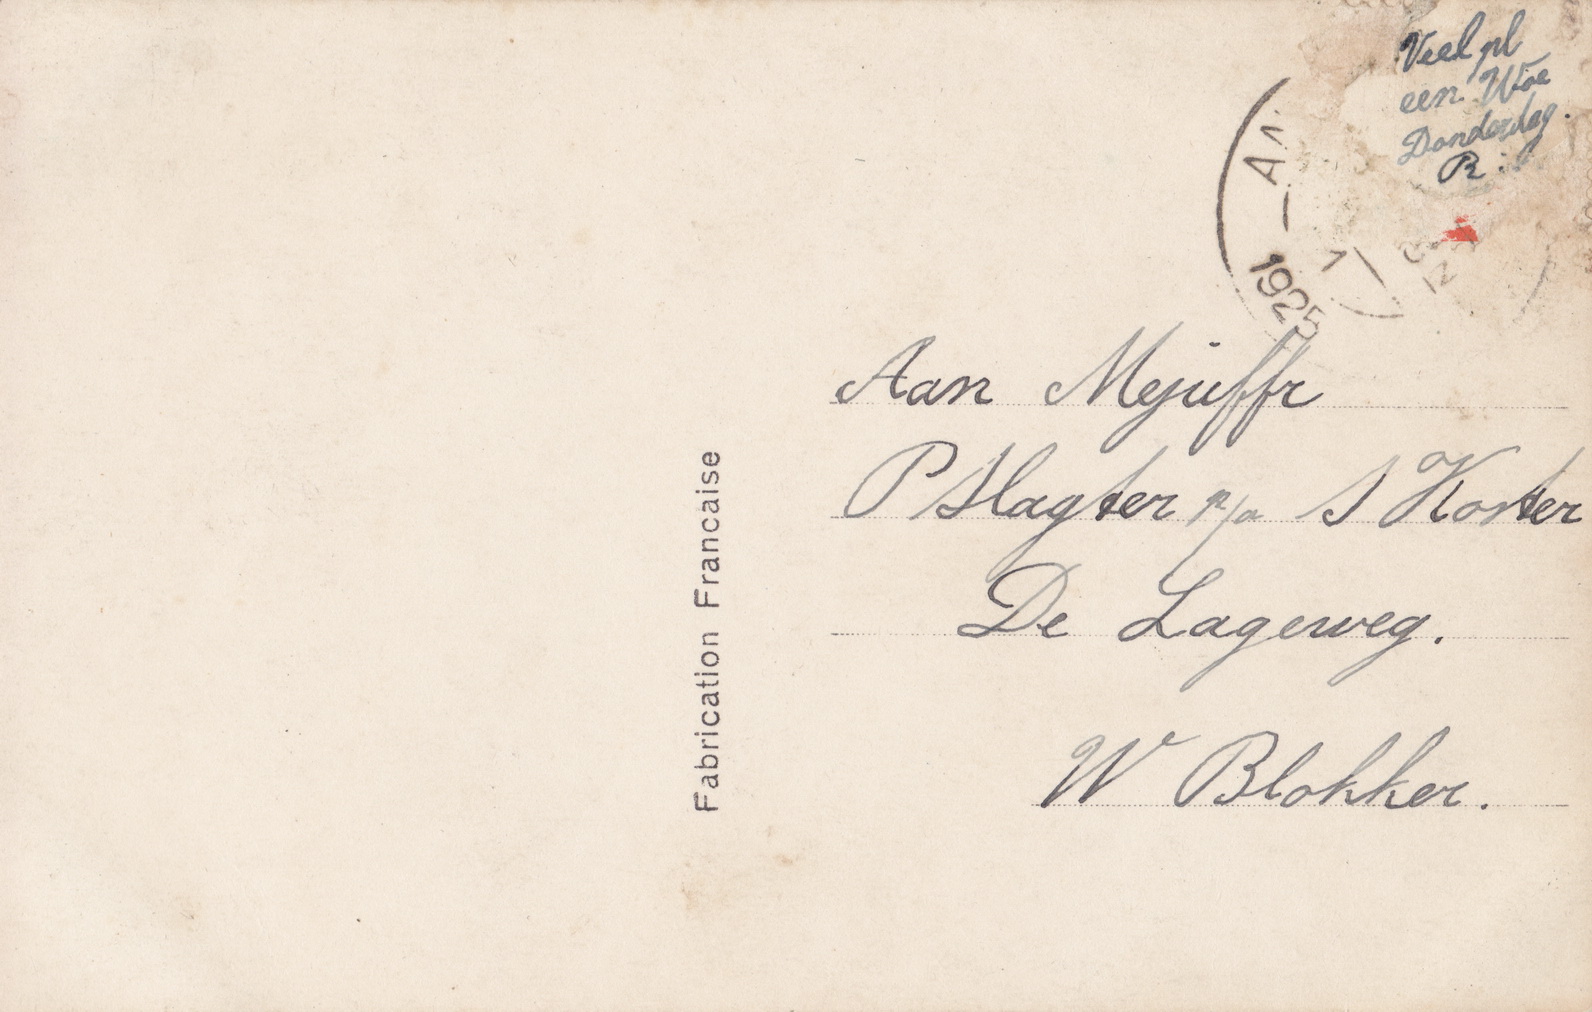 Veel pl
een Woe
Donderdag.
R.
1925
Aan Mejuffr
P Slagter p/a S Koster
De Lageweg.
W Blokker.
Fabrication Francaise